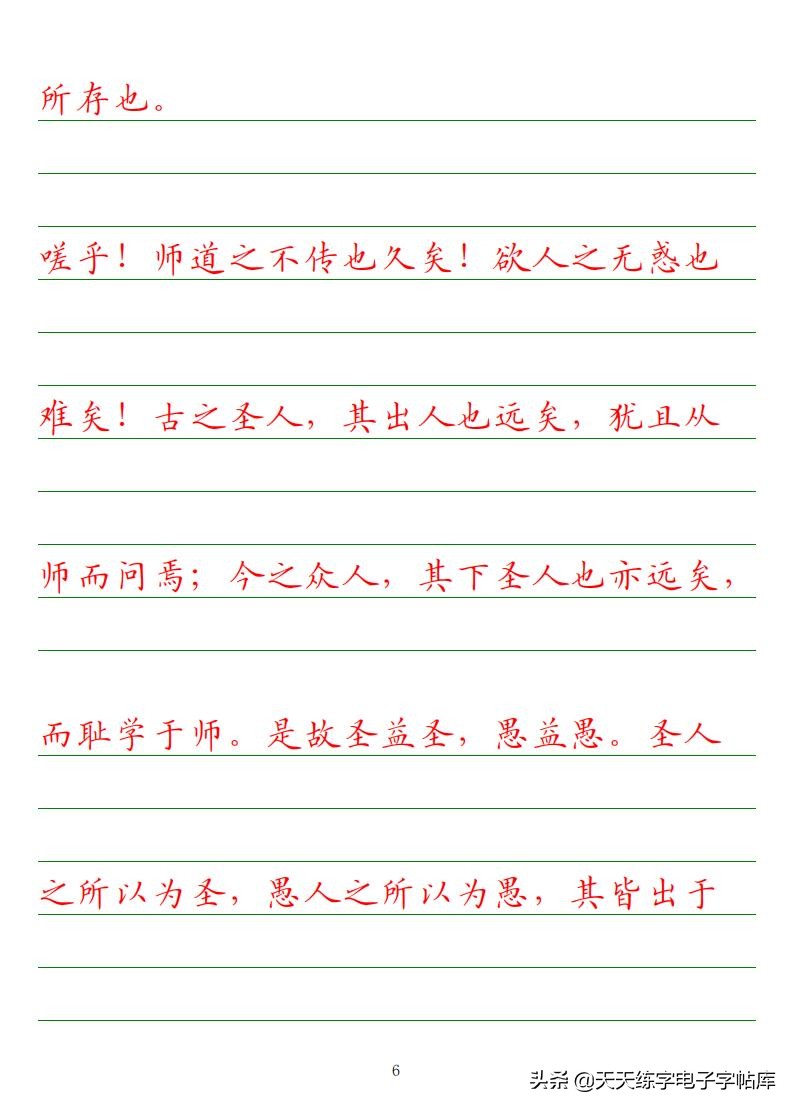 所存也。
嗟乎！师道之不传也久矣！欲人之无惑也
难矣！古之圣人，其出人也远矣，犹且从
师而问焉；今之众人，其下圣人也亦远矣，
而耻学于师。是故圣益圣，愚益愚。圣人
之所以为圣，愚人之所以为愚，其皆出于
6
头条 @天天练字电子字帖库